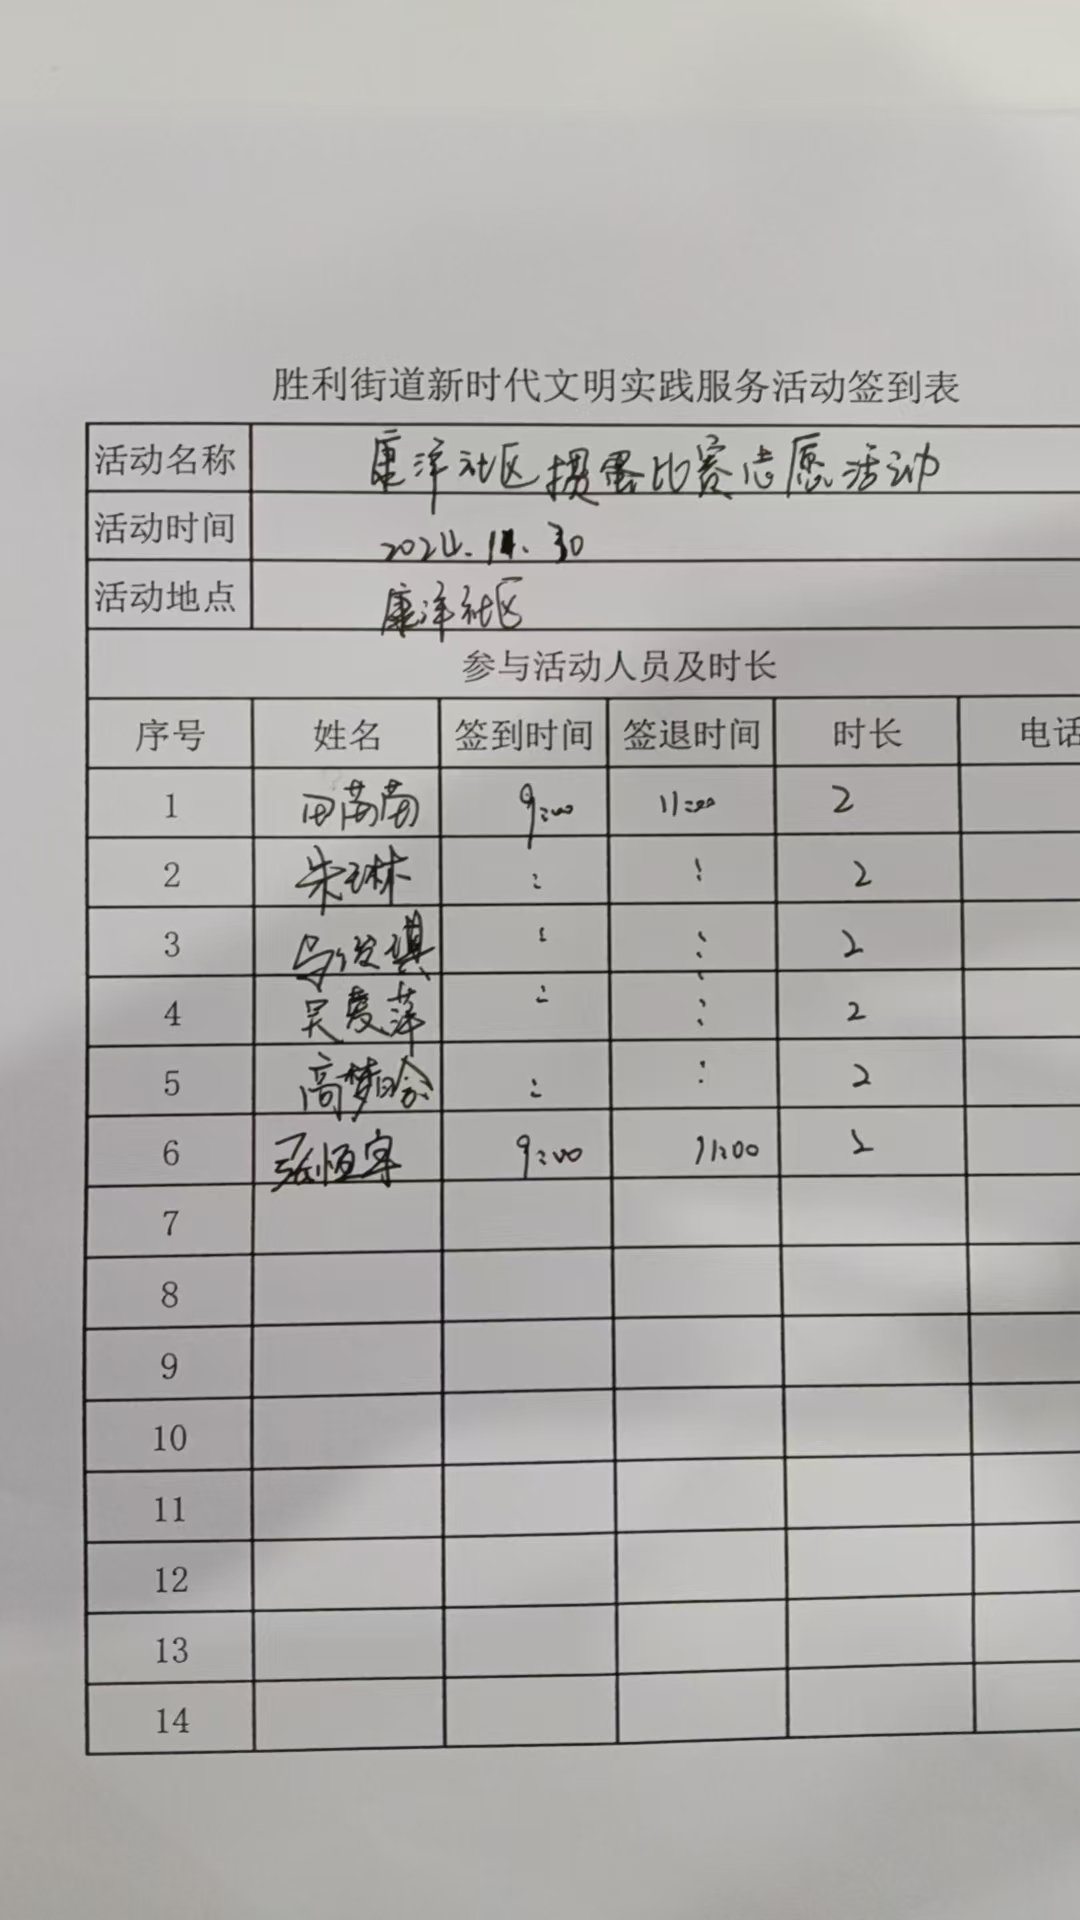 胜利街道新时代文明实践服务活动签到表
活动名称 康洋社区掼蛋比赛志愿活动
活动时间 2024.11.30
活动地点 康洋社区
参与活动人员及时长
序号 姓名 签到时间 签退时间 时长 电话
1 田苗苗 9:00 11:00 2
2 朱琳 : : 2
3 : : 2
4 吴爱萍 : : 2
5 高梦晗 : : 2
6 张恒宇 9:00 11:00 2
7
8
9
10
11
12
13
14